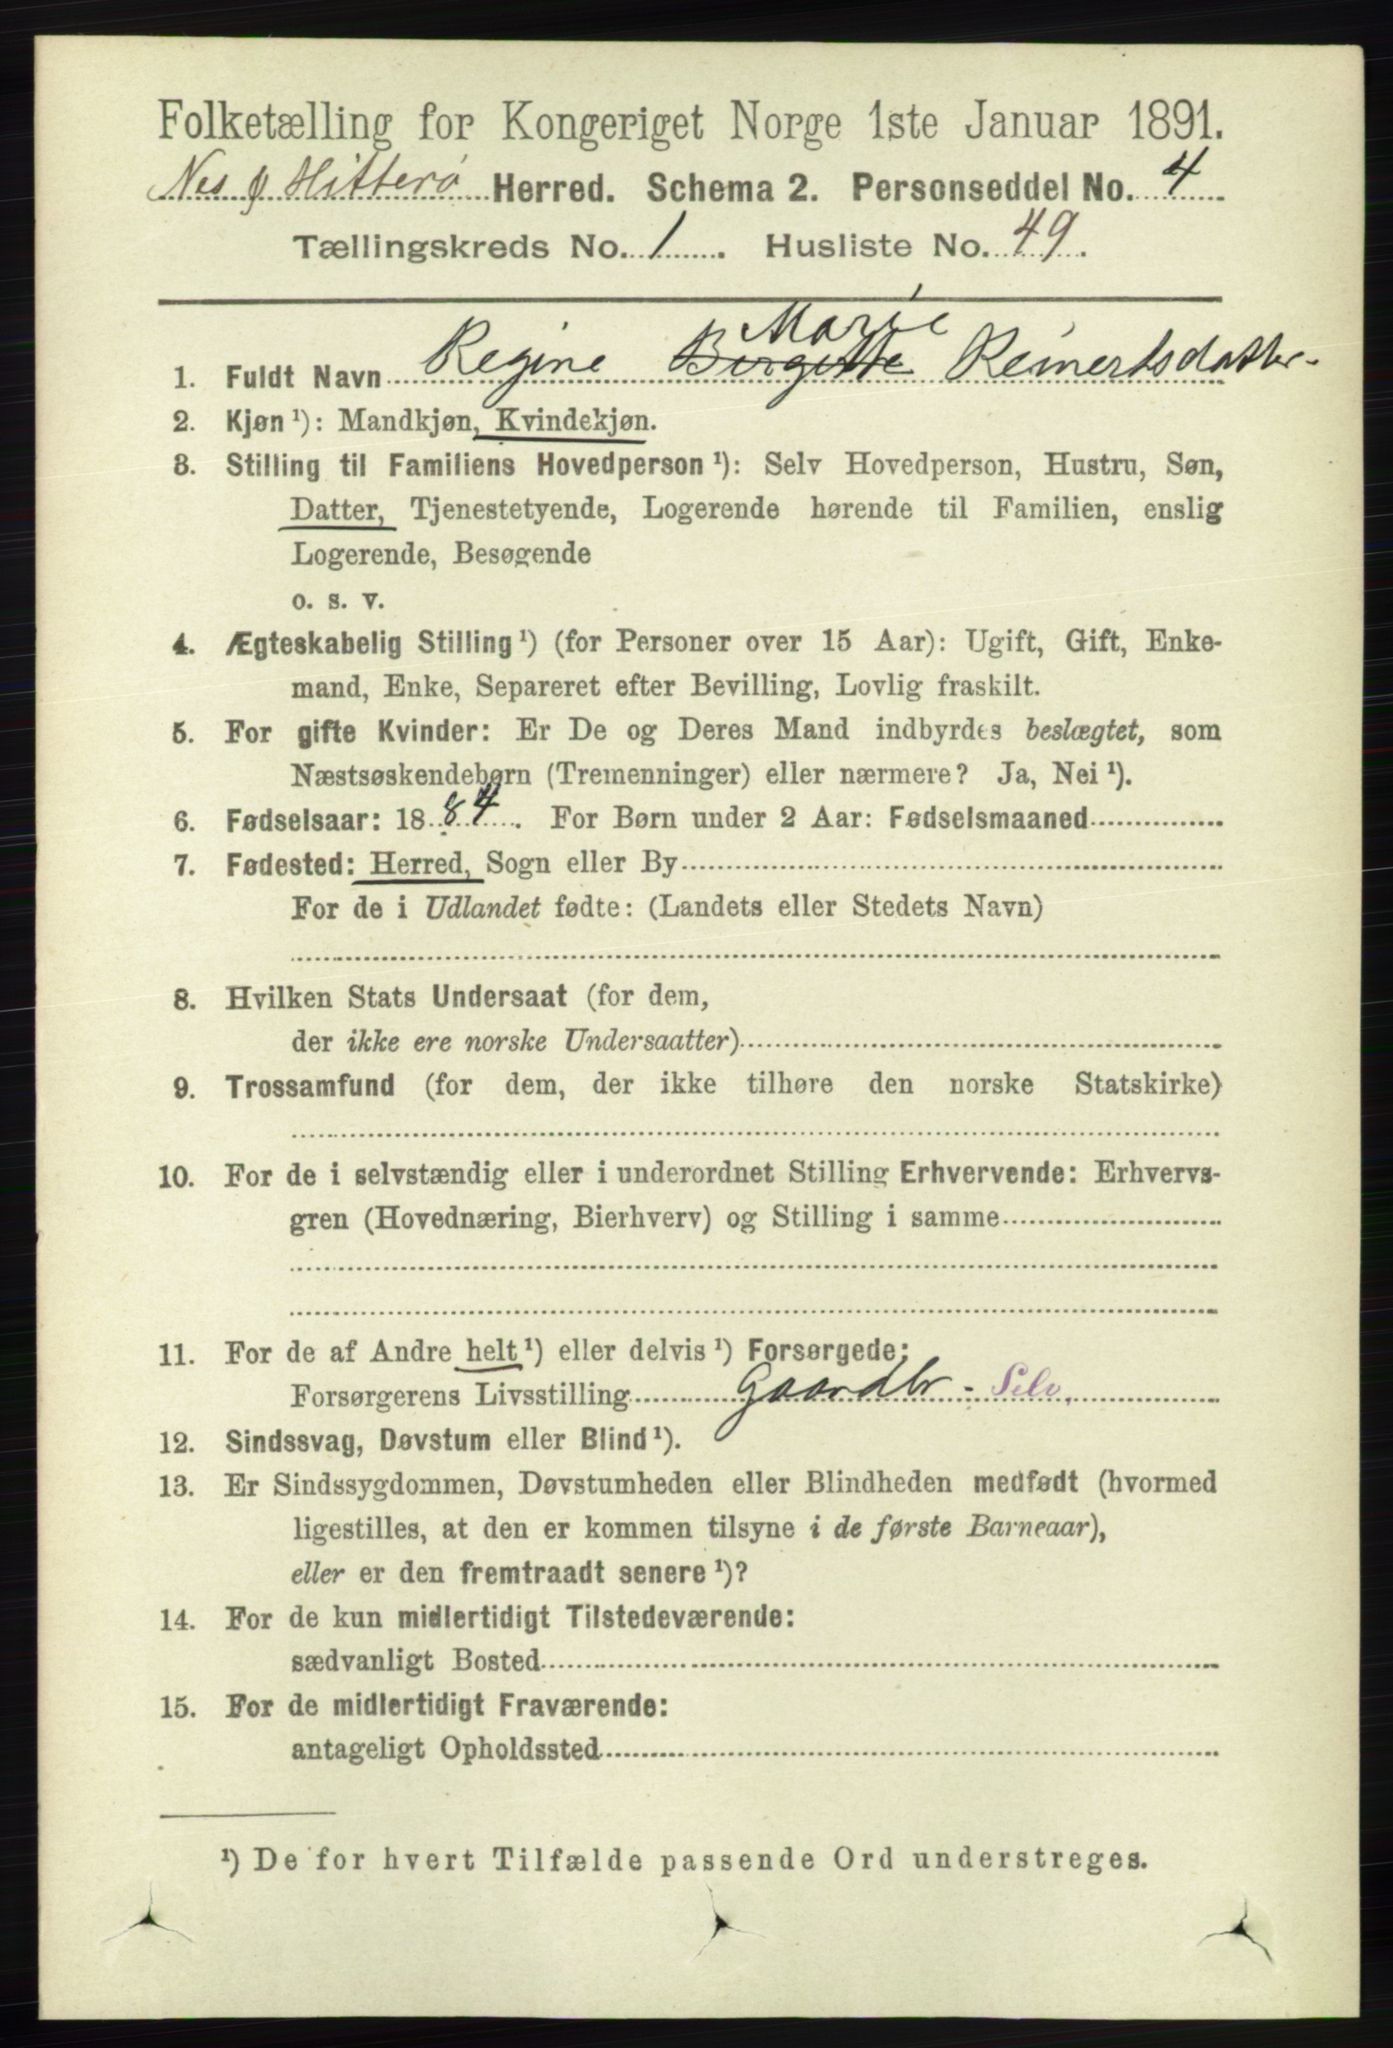 Folketælling for Kongeriget Norge 1ste Januar 1891.
Nes & Hitterø Herred. Schema 2. Personseddel No. 4
Tællingskreds No. 1. Husliste No. 49.
Marie
1. Fuldt Navn Regine Birgitte Reinertsdatter
2. Kjøn ¹): Mandkjøn, Kvindekjøn.
3. Stilling til Familiens Hovedperson ¹): Selv Hovedperson, Hustru, Søn,
Datter, Tjenestetyende, Logerende hørende til Familien, enslig
Logerende, Besøgende
o. s. v.
4. Ægteskabelig Stilling ¹) (for Personer over 15 Aar): Ugift, Gift, Enke-
mand, Enke, Separeret efter Bevilling, Lovlig fraskilt.
5. For gifte Kvinder: Er De og Deres Mand indbyrdes beslægtet, som
Næstsøskendebørn (Tremenninger) eller nærmere? Ja, Nei ¹).
6. Fødselsaar: 1884. For Børn under 2 Aar: Fødselsmaaned
7. Fødested: Herred, Sogn eller By
For de i Udlandet fødte: (Landets eller Stedets Navn)
8. Hvilken Stats Undersaat (for dem,
der ikke ere norske Undersaatter)
9. Trossamfund (for dem, der ikke tilhøre den norske Statskirke)
10. For de i selvstændig eller i underordnet Stilling Erhvervende: Erhvervs-
gren (Hovednæring, Bierhverv) og Stilling i samme
11. For de af Andre helt ¹) eller delvis ¹) Forsørgede:
Forsørgerens Livsstilling Gaardbr - Selv.
12. Sindssvag, Døvstum eller Blind ¹).
13. Er Sindssygdommen, Døvstumheden eller Blindheden medfødt (hvormed
ligestilles, at den er kommen tilsyne i de første Barneaar),
eller er den fremtraadt senere ¹)?
14. For de kun midlertidigt Tilstedeværende:
sædvanligt Bosted
15. For de midlertidigt Fraværende:
antageligt Opholdssted
¹) De for hvert Tilfælde passende Ord understreges.